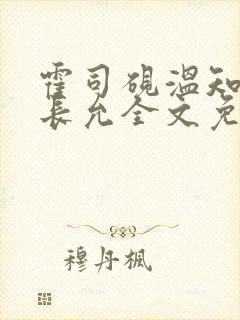 霍司砚温知
長允全文免
穆丹楓